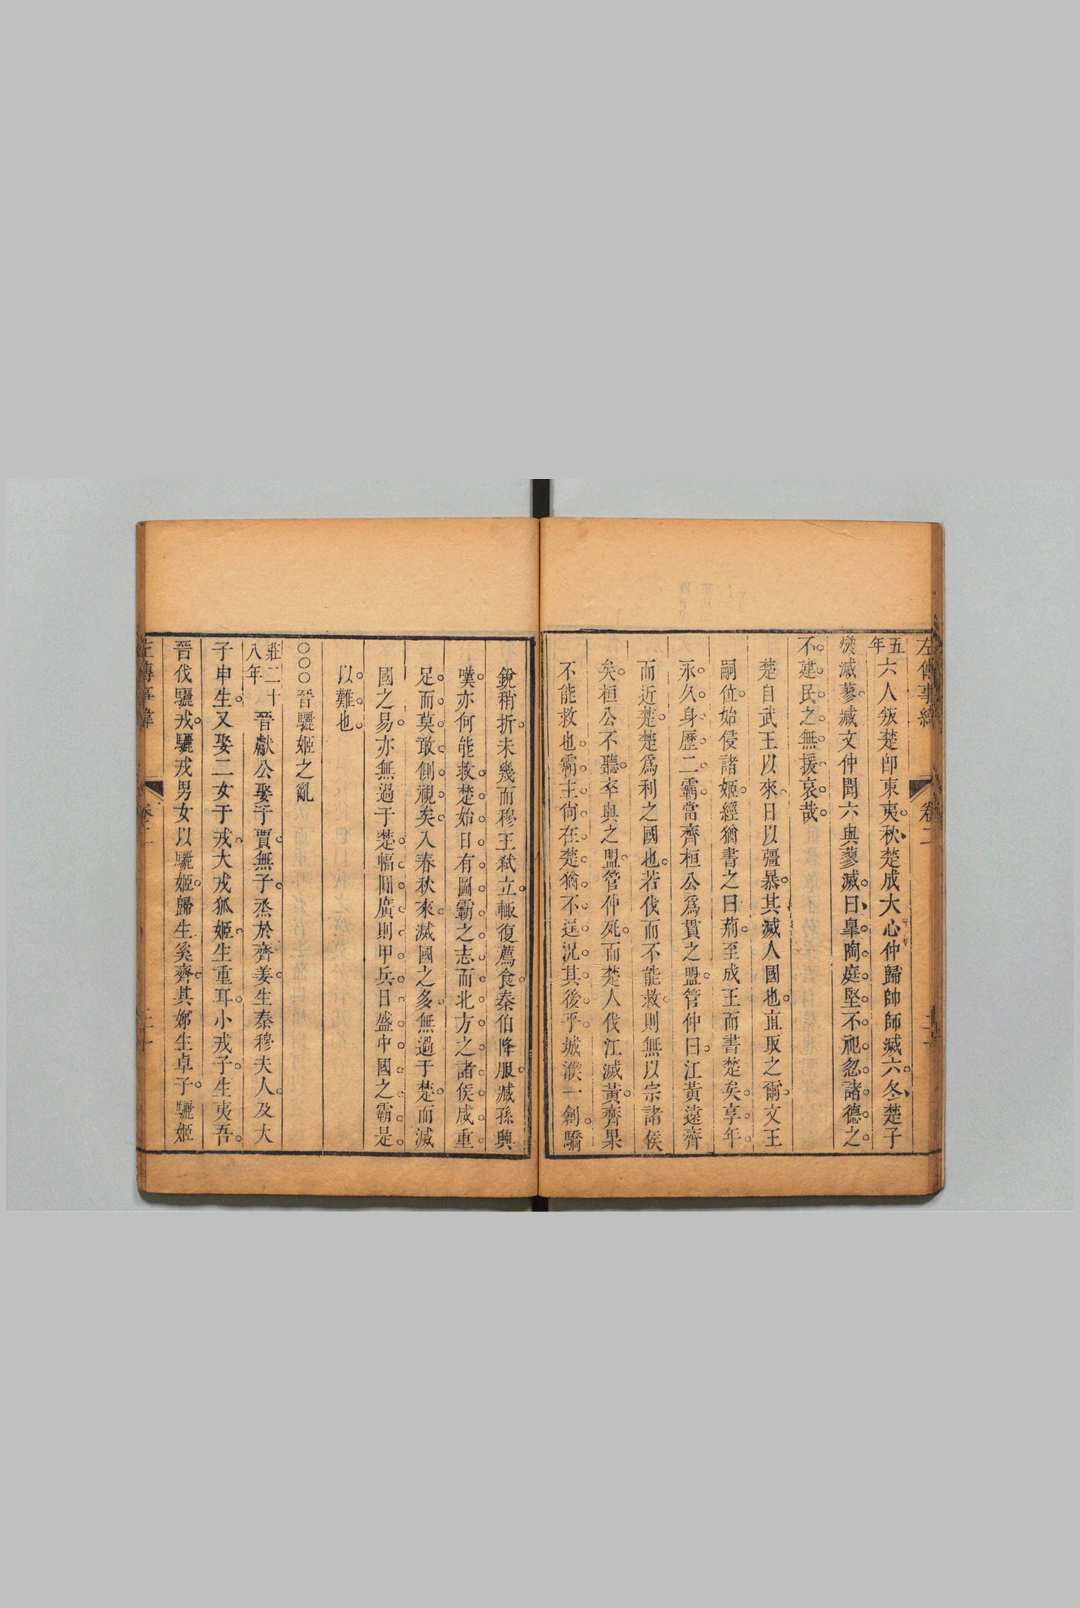 左傳事緯 卷二
五年
六人叛楚卽東夷秋楚成大心仲歸帥師滅六冬楚子
燮滅蓼臧文仲聞六與蓼滅曰臯陶庭堅不祀忽諸德之
不建民之無援哀哉
楚自武王以來日以彊暴其滅人國也直取之爾文王
嗣位始侵諸姬經猶書之曰荊至成王而書楚矣享年
永久身歷二霸當齊桓公爲貫之盟管仲曰江黃遠齊
而近楚楚爲利之國也若伐而不能救則無以宗諸侯
矣桓公不聽卒與之盟管仲死而楚人伐江滅黃齊果
不能救也霸主尙在楚猶不逞況其後乎城濮一創驕
銳稍折未幾而穆王弑立輙復薦食秦伯降服臧孫興
嘆亦何能救楚始日有圖霸之志而北方之諸侯咸重
足而莫敢側視矣入春秋來滅國之多無過于楚而滅
國之易亦無過于楚幅圓廣則甲兵日盛中國之霸是
以難也
○○○晉驪姬之亂
莊二十八年
晉獻公娶于賈無子烝於齊姜生秦穆夫人及大
子申生又娶二女于戎大戎狐姬生重耳小戎子生夷吾
晉伐驪戎驪戎男女以驪姬歸生奚齊其娣生卓子驪姬
左傳事緯 卷二